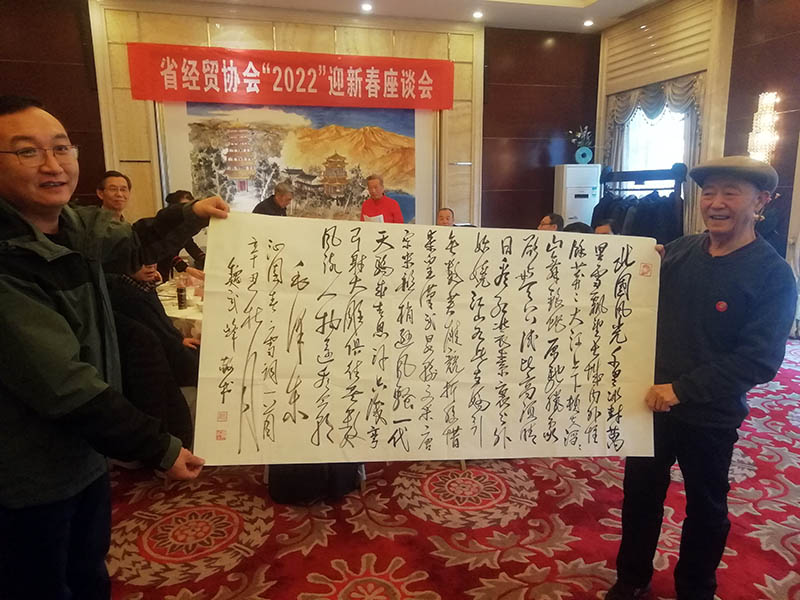 省经贸协会“2022”迎新春座谈会
北国风光千里冰封萬
里雪飘望长城内外惟
馀莽々大江上下顿失滔々
山舞银蛇原驰腊象欲
与天公试比高须晴
日看红装素裹分外
妖娆江山如此多娇引
无数英雄竞折腰惜
秦皇汉武略输文采唐
宗宋祖稍逊风骚一代
天骄成吉思汗只识弯
弓射大雕俱往矣数
风流人物还看今朝
毛泽东
沁园春雪词一首
辛丑秋月
武峰敬书